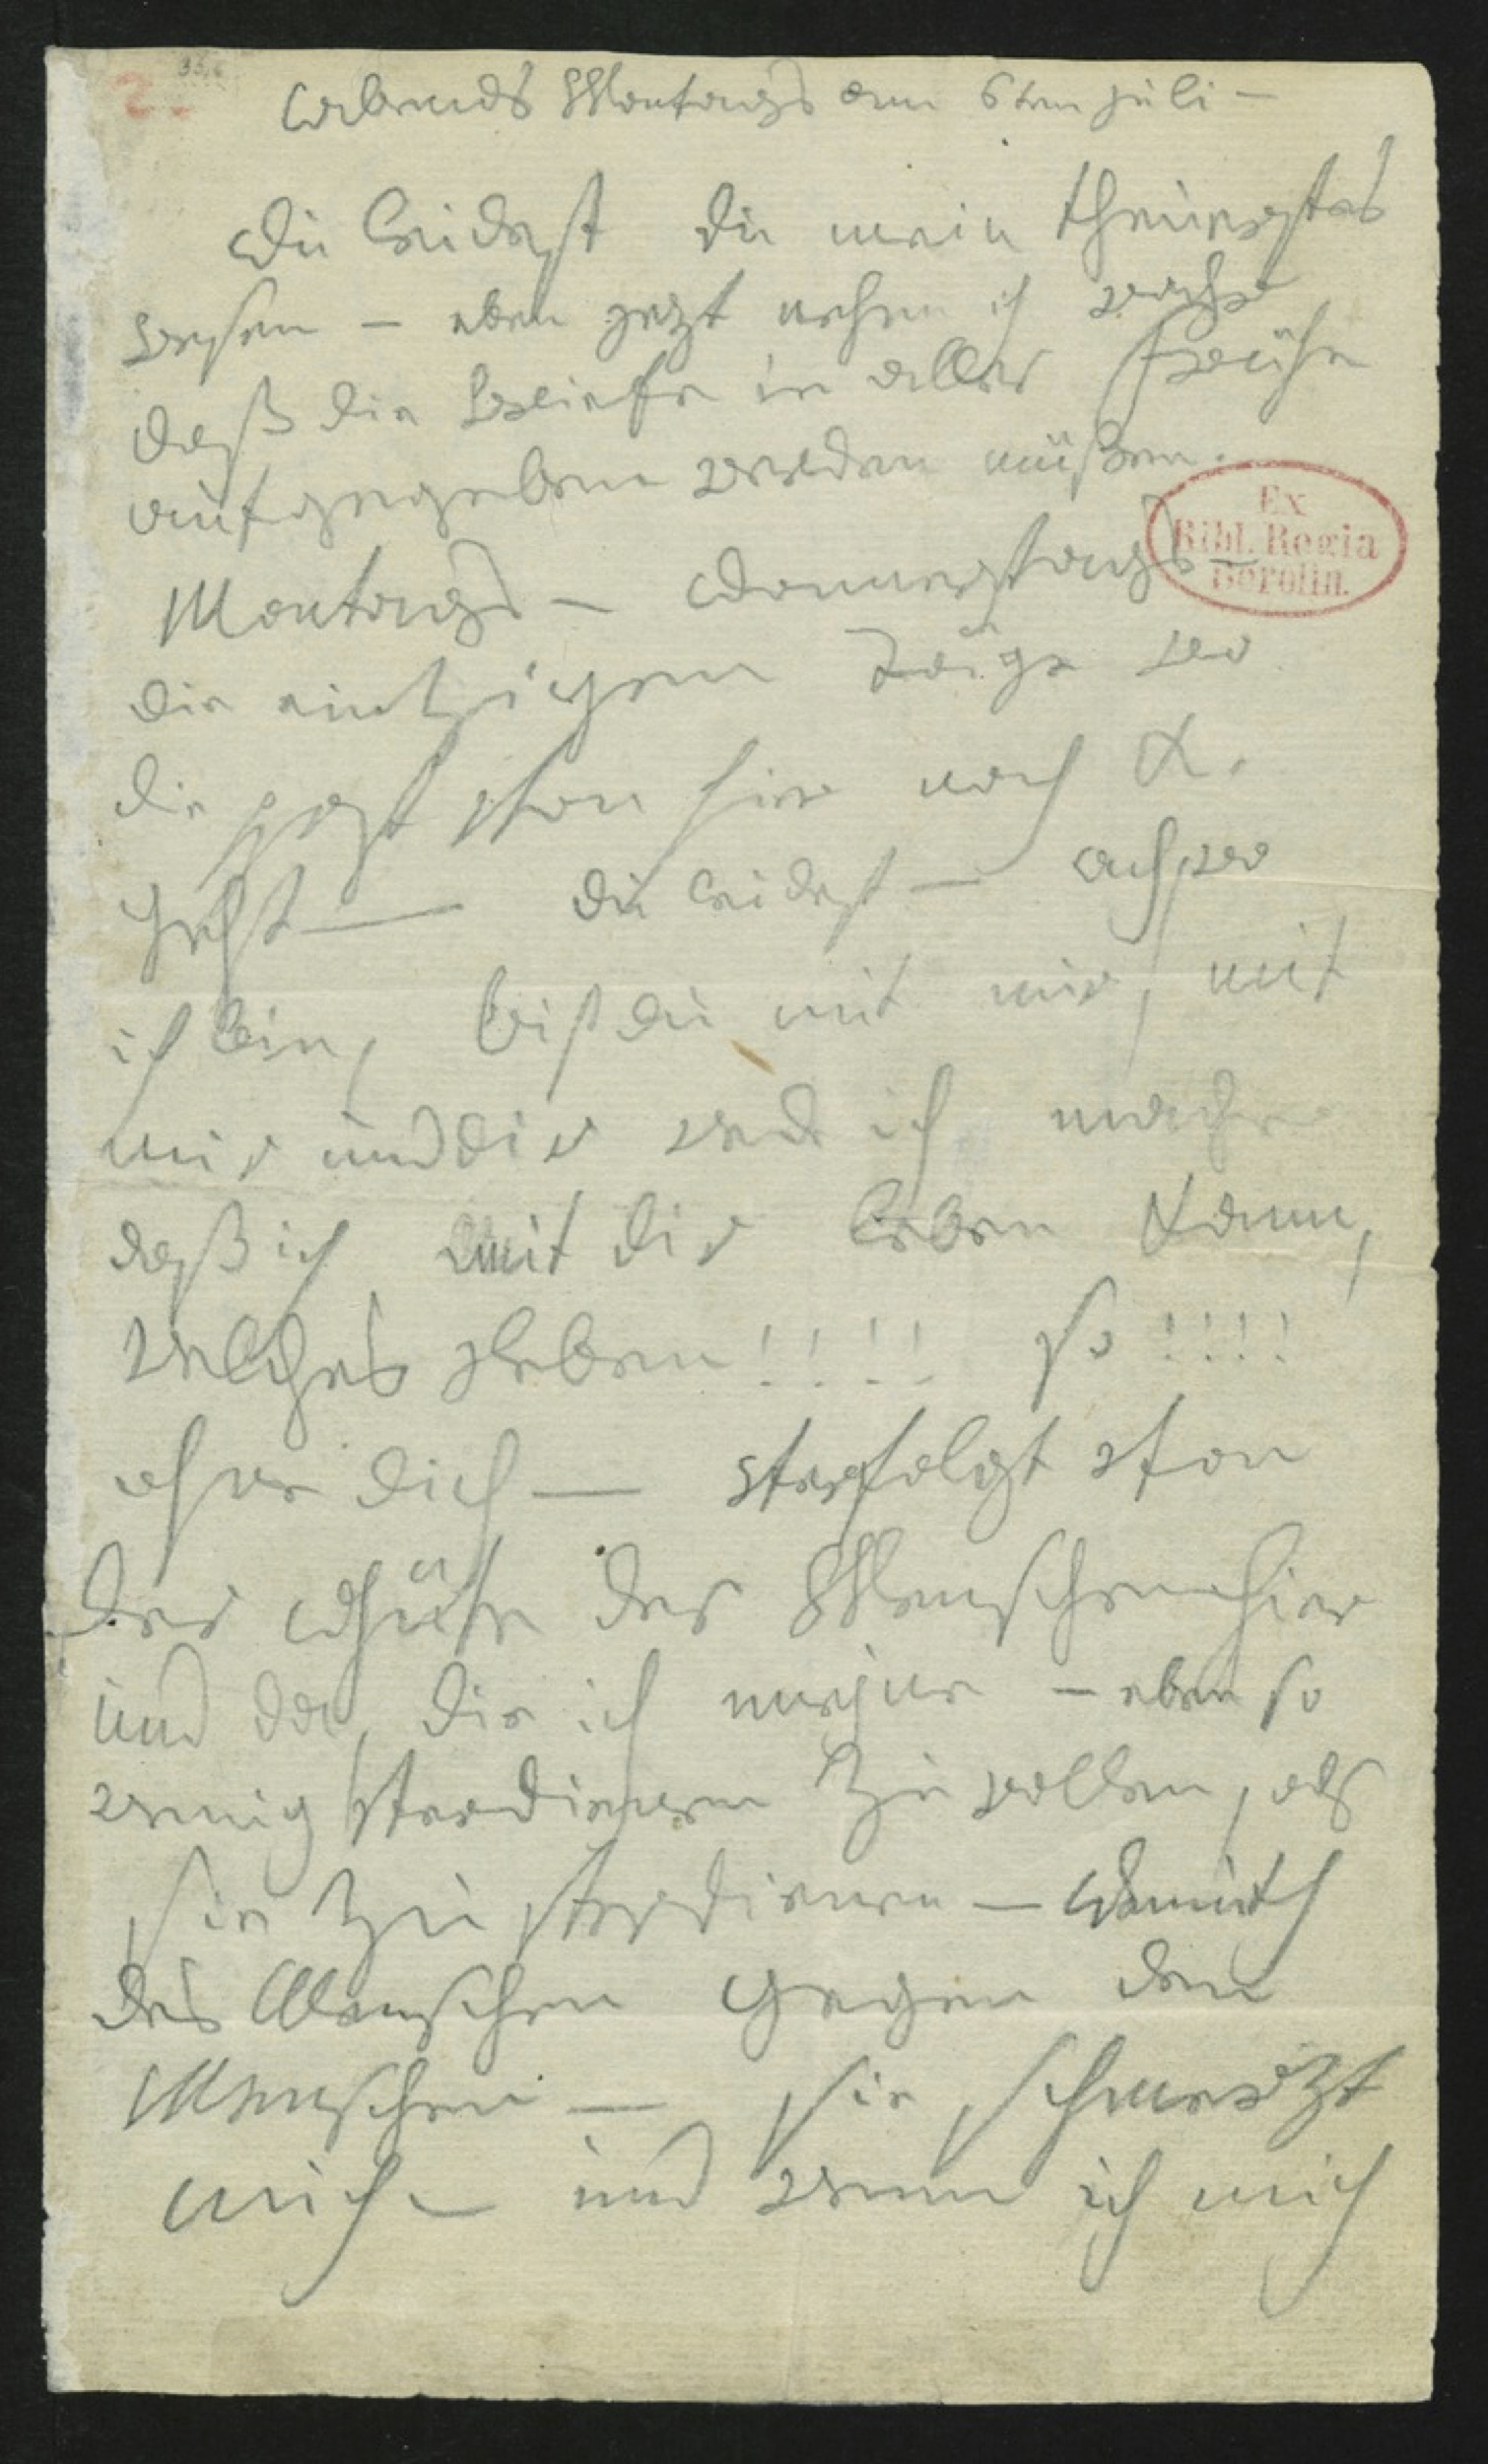 35,6
2.
Abends Montags am 6ten juli –
Du leidest du mein theuerstes
Wesen – eben jezt nehme ich wahr
daß die Briefe in aller Frühe
aufgegeben werden müßen.
Montags – Donnerstags –
die eintzigen Täge wo
die post von hier nach K.
geht – du leidest – ach, wo
ich bin, bist du mit mir, mit
mir und dir werde ich machen
daß ich mit dir leben kann,
welches Leben!!!! so!!!!
ohne dich – Verfolgt von
der Güte der Menschen hier
und da, die ich meyne – eben so
wenig verdienen zu wollen, als
sie zu verdienen – Demuth
des Menschen gegen den
Menschen – sie schmerzt
mich – und wenn ich mich
Ex
Bibl. Regia
Berolin.